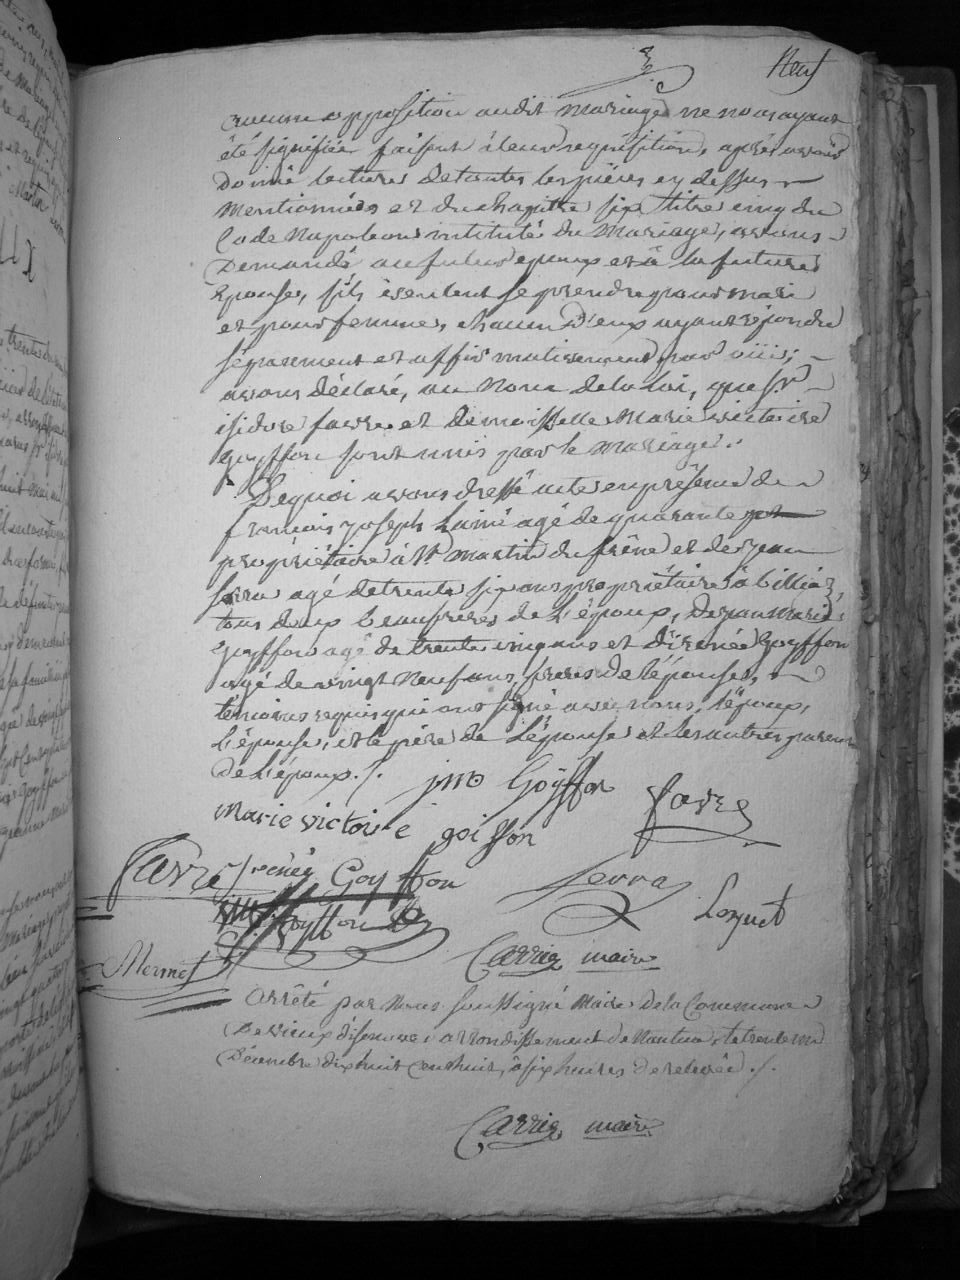 Neuf
aucune opposition audit mariage ne nous ayant
été signifiée faisant à leur requisition, après avoir
donné lecture de toutes les pièces cy dessus
mentionnées et du chapitre six titre cinq du
Code Napoleon intitulé du Mariage, avons
Demandé au futur epoux et à la future
Epouse, s'ils veulent se prendre pour mari
et pour femme, chacun d'eux ayant repondu
séparément et affirmativement par oui;
avons déclaré, au Nom de la loi, que Sr
isidore favre et demoiselle Marie victoire
goyffon sont unis par le Mariage.
De quoi avons dressé acte en présence de
françois joseph Lainé agé de quarante
propriétaire à St martin du frêne et de jean
Serra agé de trente six ans propriétaire à billiaz,
tous deux beaufreres de l'époux, De jean marie
Goyffon agé de trente cinq ans et d'irenée Goyffon
agé de vingt Neuf ans, freres de l'épouse,
témoins requis qui ont signé avec nous, l'époux,
l'épouse, et le père de l'épouse et les autres parens
de l'époux ./.
jm Goÿffon
favre
Marie victoire goiffon
favre
irénéé Goyffon
Serra
Goyffon
Carrier maire
Mermet
Arrêté par Nous soussigné Maire de la Commune
De vieux d'isenave arrondissement de Nantua, le trente un
Décembre dix huit cent huit, à six heures de relevée ./.
Carrier maire